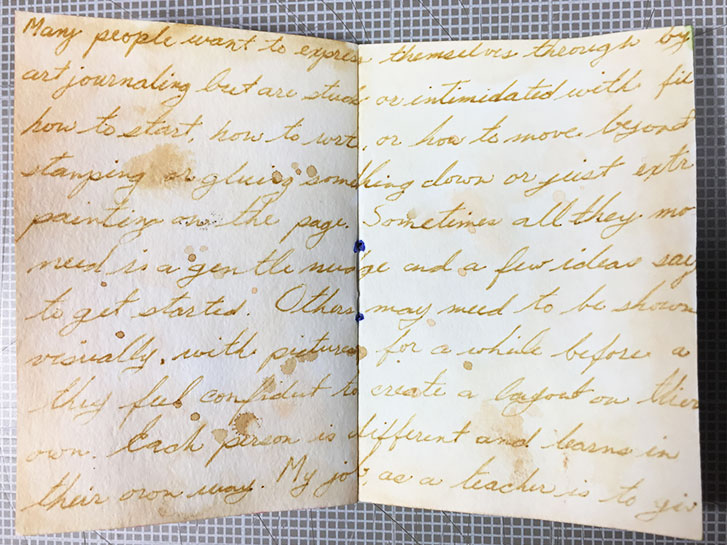 Many people want to express themselves through by
art journaling but are stuck or intimidated with
how to start, how to wrt, or how to move beyond
stamping or gluing something down or just extr
painting on the page. Sometimes all they mo
need is a gentle nudge and a few ideas say
to get started. Others may need to be shown
visually, with pictures for a while before a
they feel confident to create a layout on thier
own. Each person is different and learns in
their own way. My job, as a teacher is to giv